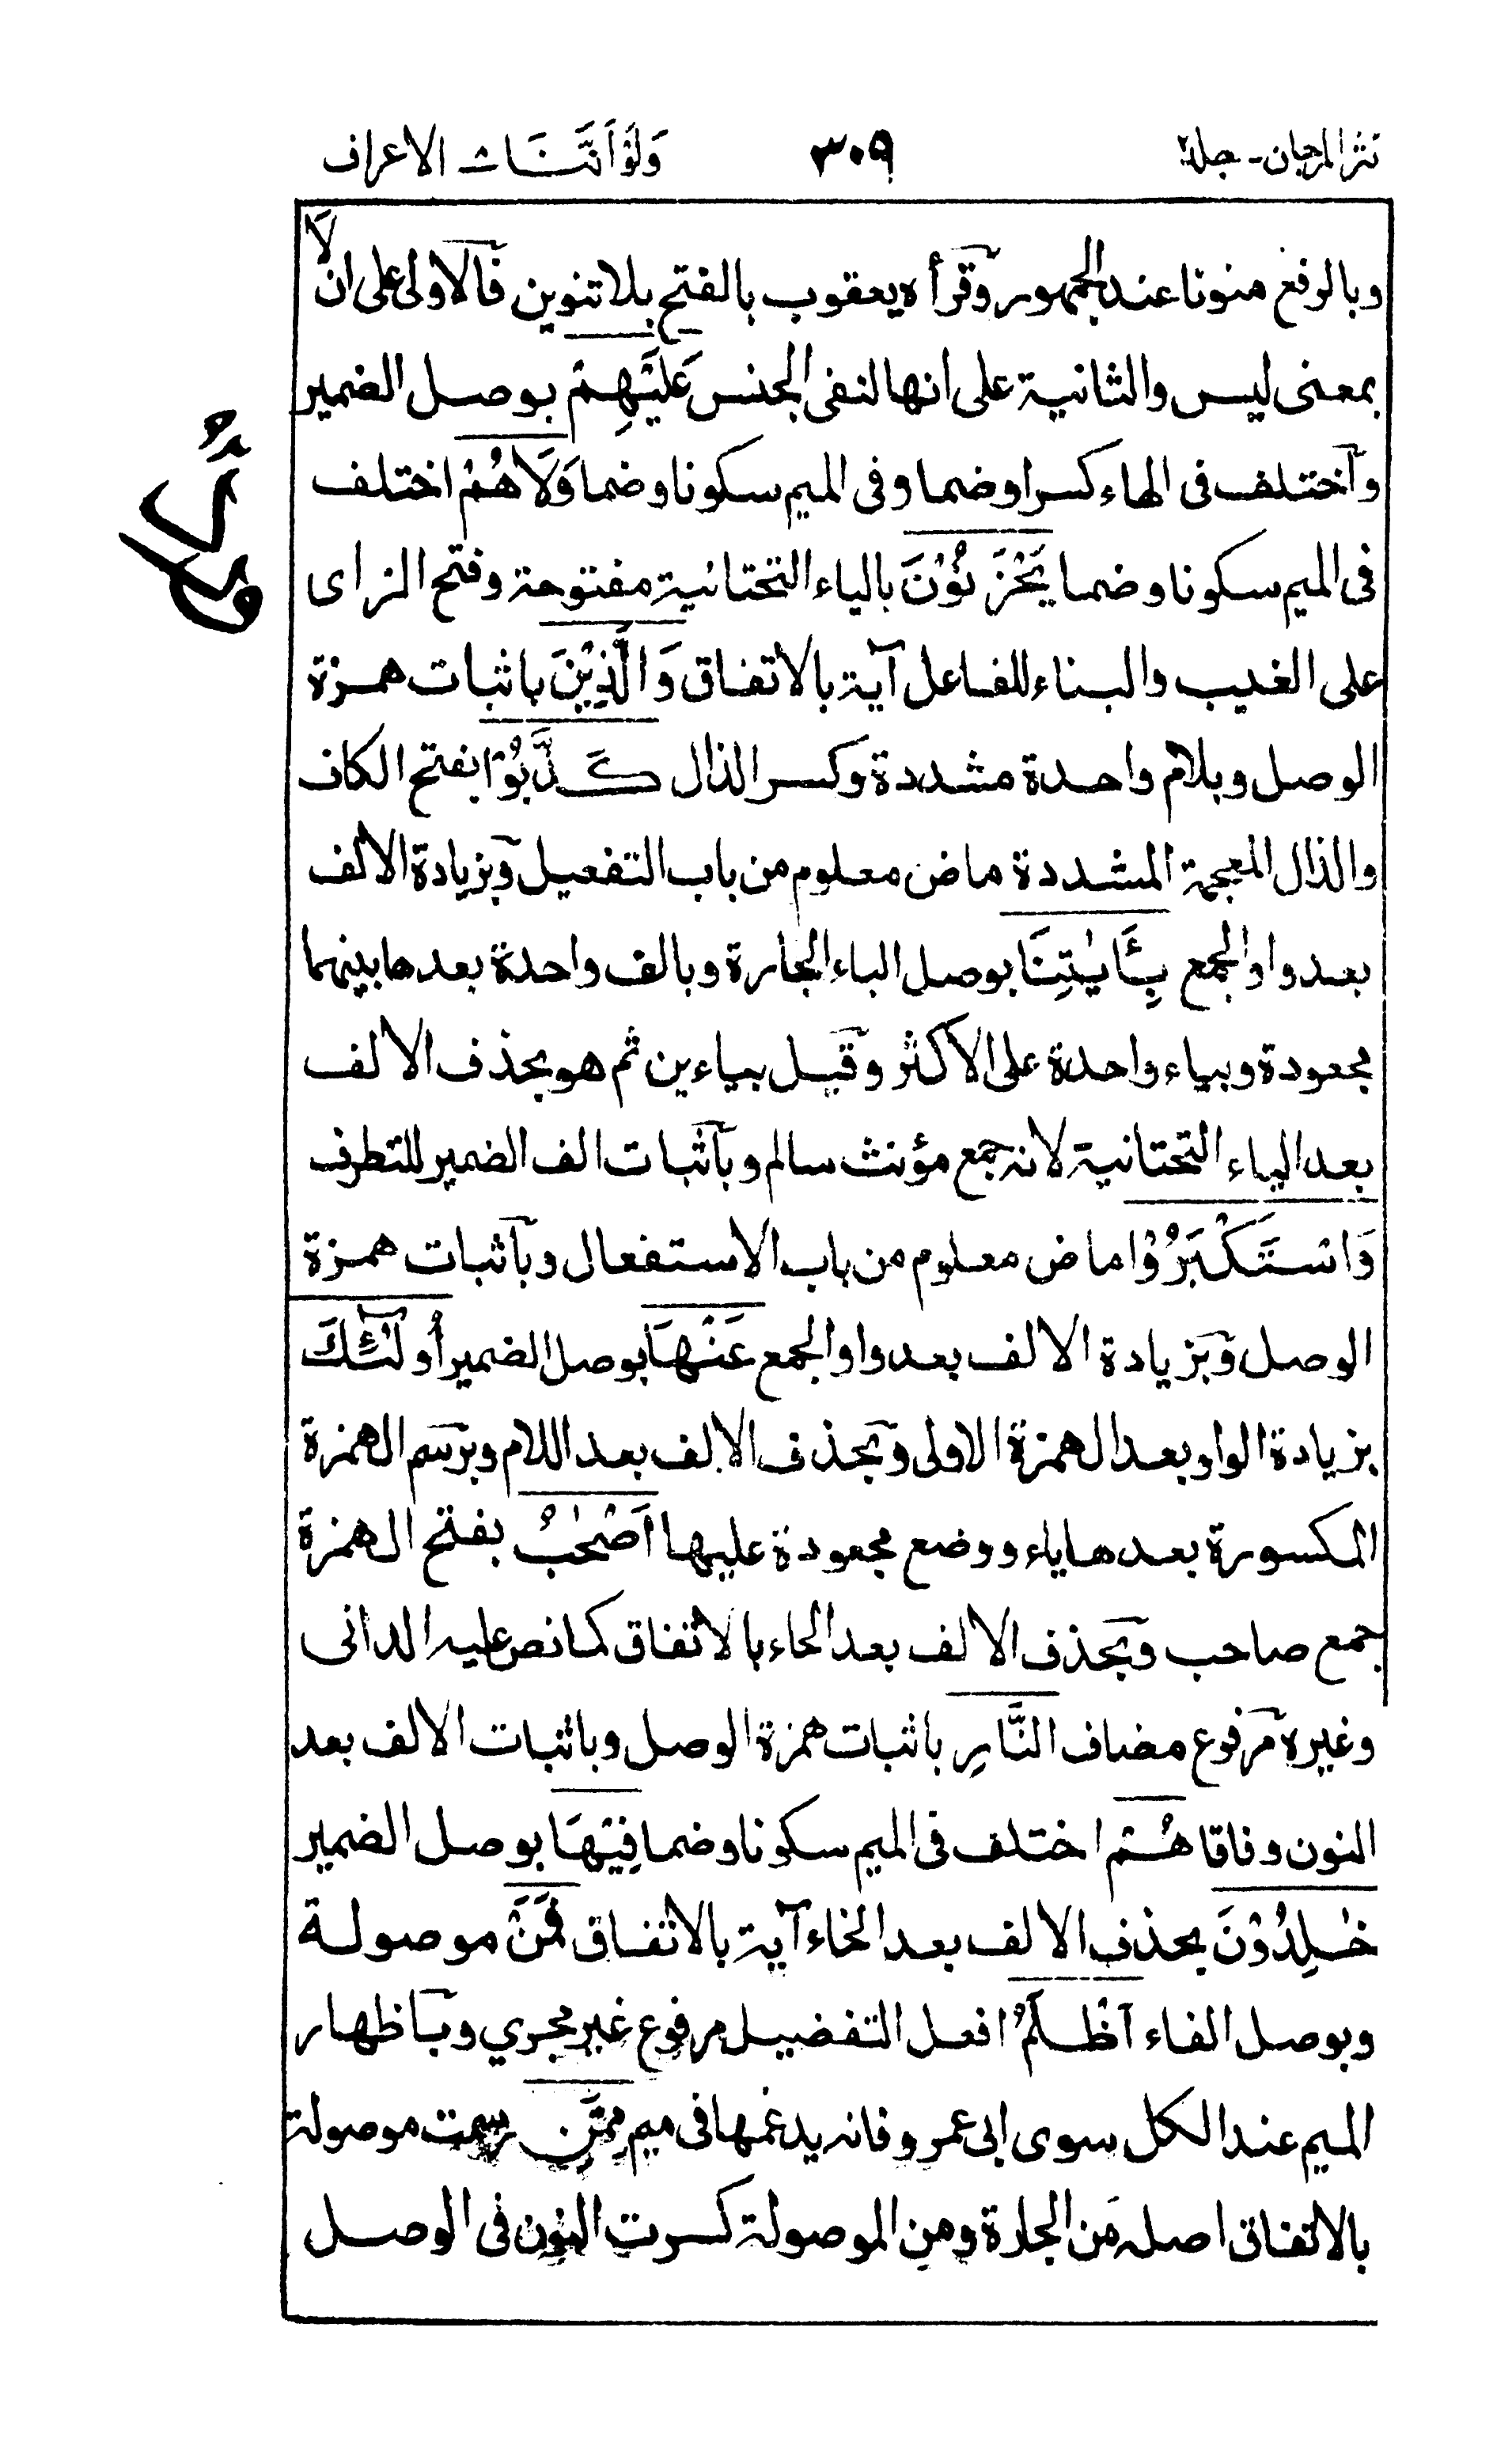 نثر المرجان - جلد٢
٣٠٩
وَلَوْ اَنَّنَا ــ الاعراف
وبالرفع منونا عند الجمهور وقرأه يعقوب بالفتح بلا تنوين فالاولى على ان لَا
بمعنى ليس والثانية على انها لنفى الجنس عَلَيْهِمْ بوصل الضمير
واختلف فى الهاء كسرا وضما وفى الميم سكونا وضما وَلَا هُمْ اختلف
فى الميم سكونا وضما يَحْزَنُوْنَ بالياء التحتانية مفتوحة وفتح الزاى
على الغيب والبناء للفاعل آية بالاتفاق وَالَّذِيْنَ باثبات همزة
الوصل وبلام واحدة مشددة وكسر الذال كَذَّبُوْا بفتح الكاف
والذال المعجمة المشددة ماض معلوم من باب التفعيل وبزيادة الالف
بعد واو الجمع بِـَٔايٰتِنَا بوصل الباء الجارة وبالف واحدة بعدها بينهما
مجعودة وبياء واحدة على الاكثر وقيل بياءين ثم هو بحذف الالف
بعد الياء التحتانية لانه جمع مؤنث سالم وباثبات الف الضمير للتطرف
وَاسْتَكْبَرُوْا ماض معلوم من باب الاستفعال وباثبات همزة
الوصل وبزيادة الالف بعد واو الجمع عَنْهَا بوصل الضمير أُولٰٓئِكَ
بزيادة الواو بعد الهمزة الاولى وبحذف الالف بعد اللام وبرسم الهمزة
المكسورة بعدها ياء ووضع مجعودة عليها اَصْحٰبُ بفتح الهمزة
جمع صاحب وبحذف الالف بعد الحاء بالاتفاق كما نص عليه الدانى
وغيره مرفوع مضاف النَّارِ باثبات همزة الوصل وباثبات الالف بعد
النون وفاقا هُمْ اختلف فى الميم سكونا وضما فِيْهَا بوصل الضمير
خٰلِدُوْنَ بحذف الالف بعد الخاء آية بالاتفاق فَمَنْ موصولة
وبوصل الفاء اَظْلَمُ افعل التفضيل مرفوع غير مجري وباظهار
الميم عند الكل سوى ابى عمرو فانه يدغمها فى ميم مِمَّنِ رسمت موصولة
بالاتفاق اصله من الجارة ومن الموصولة كسرت النون فى الوصل